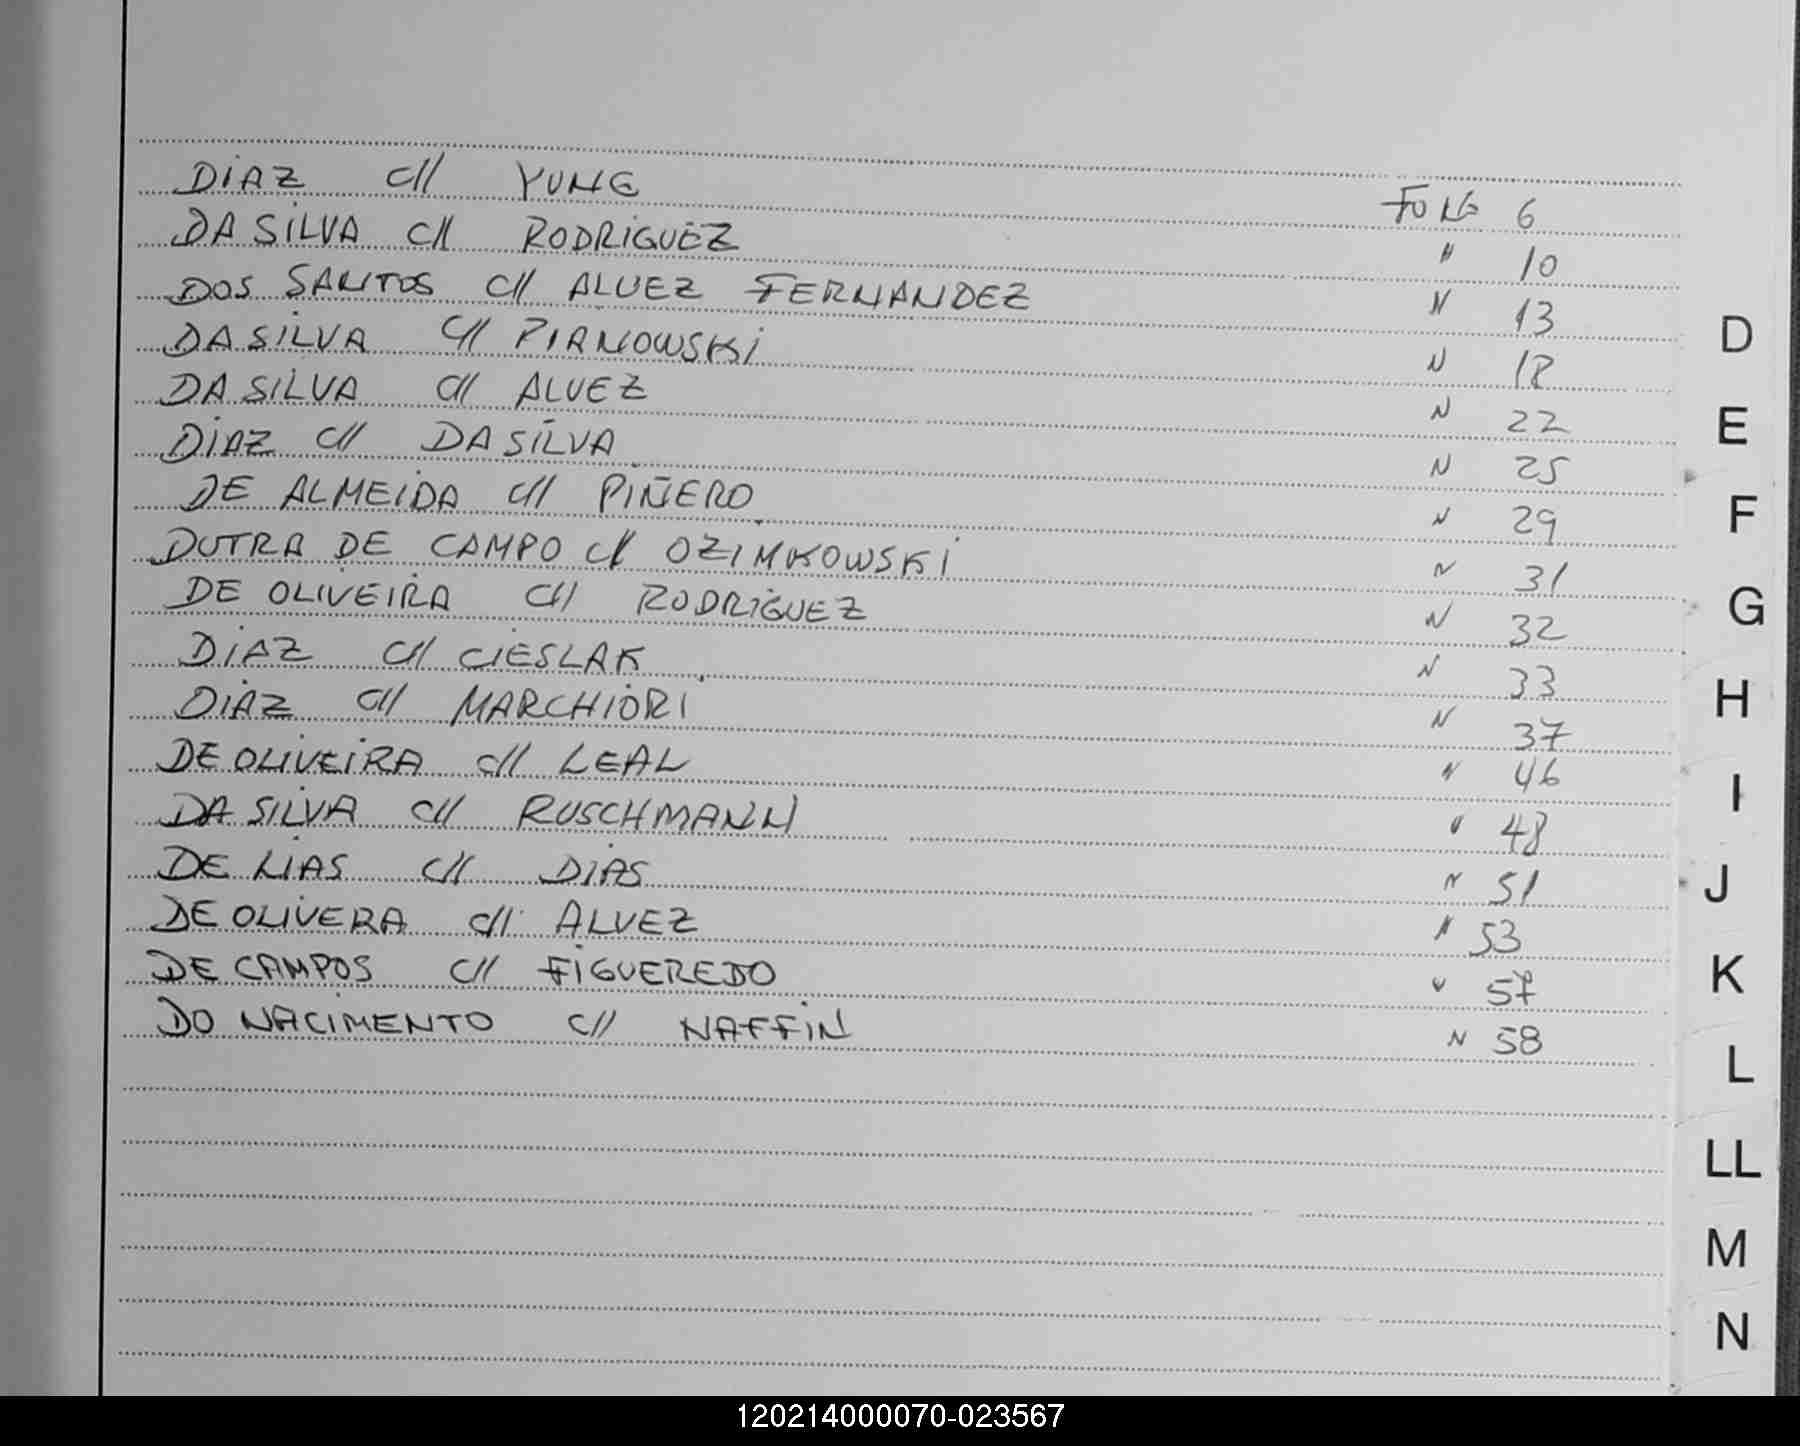 DIAZ c// YUNG FONG 6
DA SILVA c// RODRIGUEZ " 10
DOS SANTOS c// ALVEZ FERNANDEZ " 13
DA SILVA c// PIANOWSKI " 18
DA SILVA c// ALVEZ " 22
DIAZ c// DA SILVA " 25
DE ALMEIDA c// PIÑERO " 29
DUTRA DE CAMPO c// OZIMKOWSKI " 31
DE OLIVEIRA c// RODRIGUEZ " 32
DIAZ c// CIESLAK " 33
DIAZ c// MARCHIORI " 37
DE OLIVEIRA c// LEAL " 46
DA SILVA c// RUSCHMANN " 48
DE LIAS c// DIAS " 51
DE OLIVERA c// ALVEZ " 53
DE CAMPOS c// FIGUEREDO " 57
DO NACIMENTO c// NAFFIN " 58
D
E
F
G
H
I
J
K
L
LL
M
N
120214000070-023567